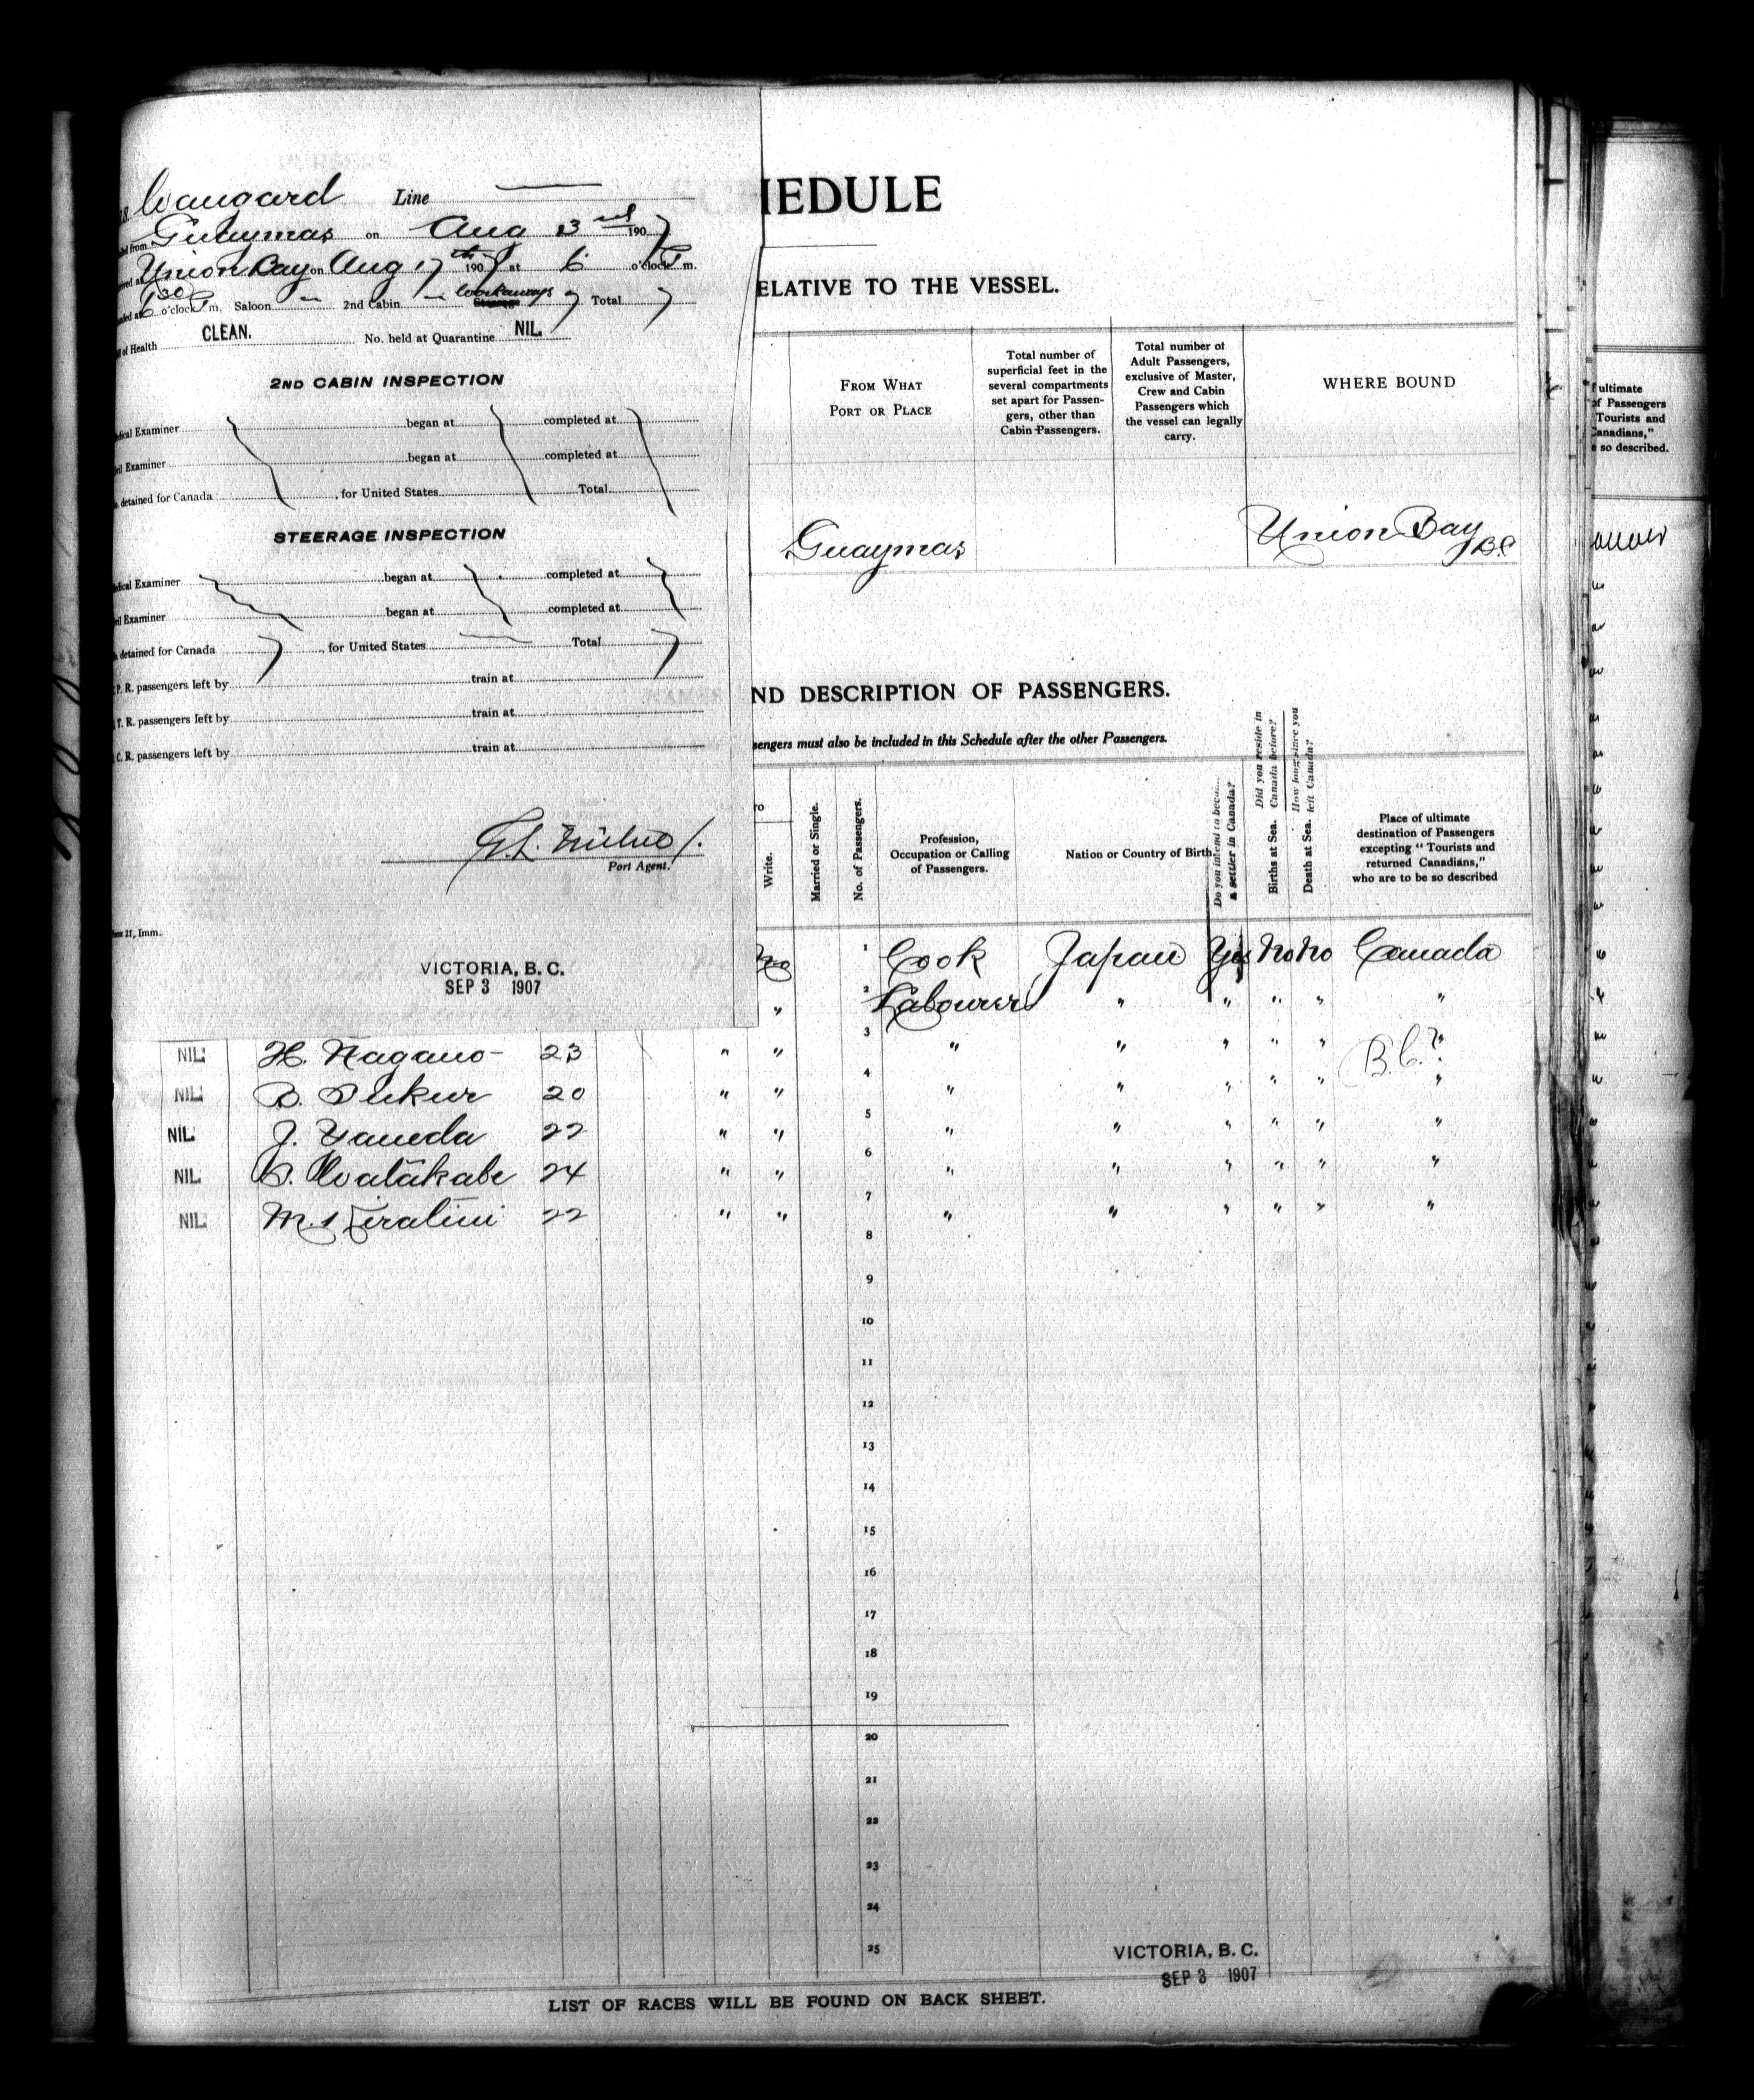 Vangard Line
Guaymas on Aug 3rd 1907
Union Bay on Aug 17th 1907 at 6 o'clock P m.
6 30 o'clock P m. Saloon — 2nd Cabin — Workaways 7 Total 7
of Health CLEAN. No. held at Quarantine NIL.
2ND CABIN INSPECTION
Examiner began at completed at
Examiner began at completed at
detained for Canada , for United States Total
STEERAGE INSPECTION
Examiner began at completed at
Examiner began at completed at
detained for Canada 7 , for United States — Total 7
P. R. passengers left by train at
T. R. passengers left by train at
C. R. passengers left by train at
Port Agent.
Imm.
VICTORIA, B. C.
SEP 3 1907
HEDULE
ELATIVE TO THE VESSEL.
FROM WHAT PORT OR PLACE
Total number of superficial feet in the several compartments set apart for Passengers, other than Cabin Passengers.
Total number of Adult Passengers, exclusive of Master, Crew and Cabin Passengers which the vessel can legally carry.
WHERE BOUND
Guaymas Union Bay B.C
ND DESCRIPTION OF PASSENGERS.
sengers must also be included in this Schedule after the other Passengers.
Write.
Married or Single.
No. of Passengers.
Profession, Occupation or Calling of Passengers.
Nation or Country of Birth
Do you intend to beco... a settler in Canada?
Did you reside in Canada before?
Births at Sea.
How long since you left Canada?
Death at Sea.
Place of ultimate destination of Passengers excepting "Tourists and returned Canadians," who are to be so described
No 1 Cook Japan Yes No No Canada
" 2 Labourer " " " " "
NIL. H. Nagano 23 " " 3 " " " " " B.C.? "
NIL. 20 " " 4 " " " " " "
NIL. J. Yaneda 22 " " 5 " " " " " "
NIL. 24 " " 6 " " " " " "
NIL. 22 " " 7 " " " " " "
8
9
10
11
12
13
14
15
16
17
18
19
20
21
22
23
24
25
VICTORIA, B. C.
SEP 3 1907
LIST OF RACES WILL BE FOUND ON BACK SHEET.
ultimate
of Passengers
Tourists and
Canadians,"
so described.